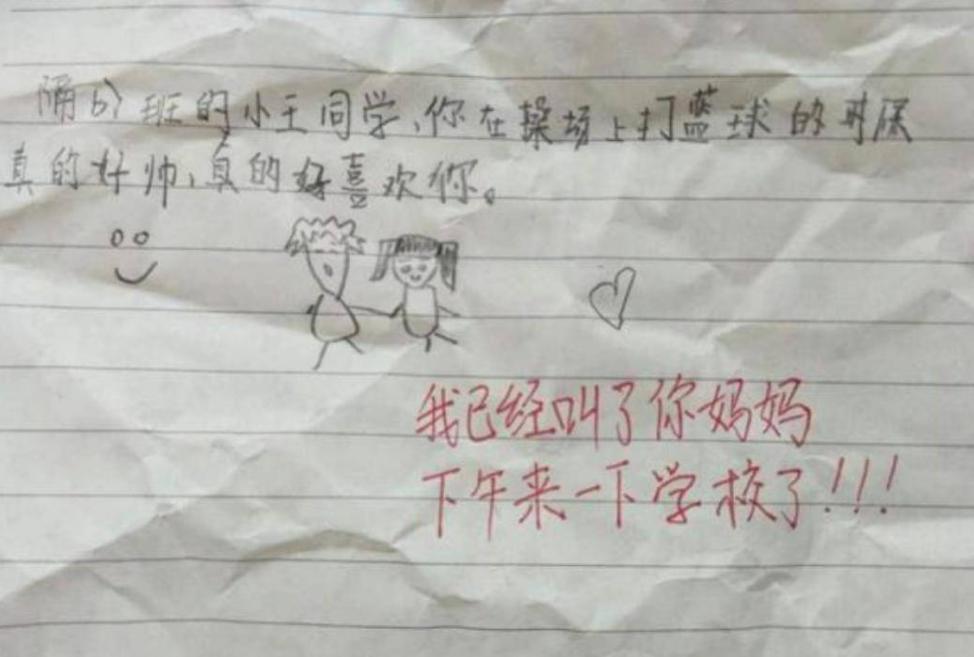 隔bì班的小王同学、你在操场上打蓝球的时候
真的好帅、真的好喜欢你。
我已经叫了你妈妈
下午来一下学校了!!!